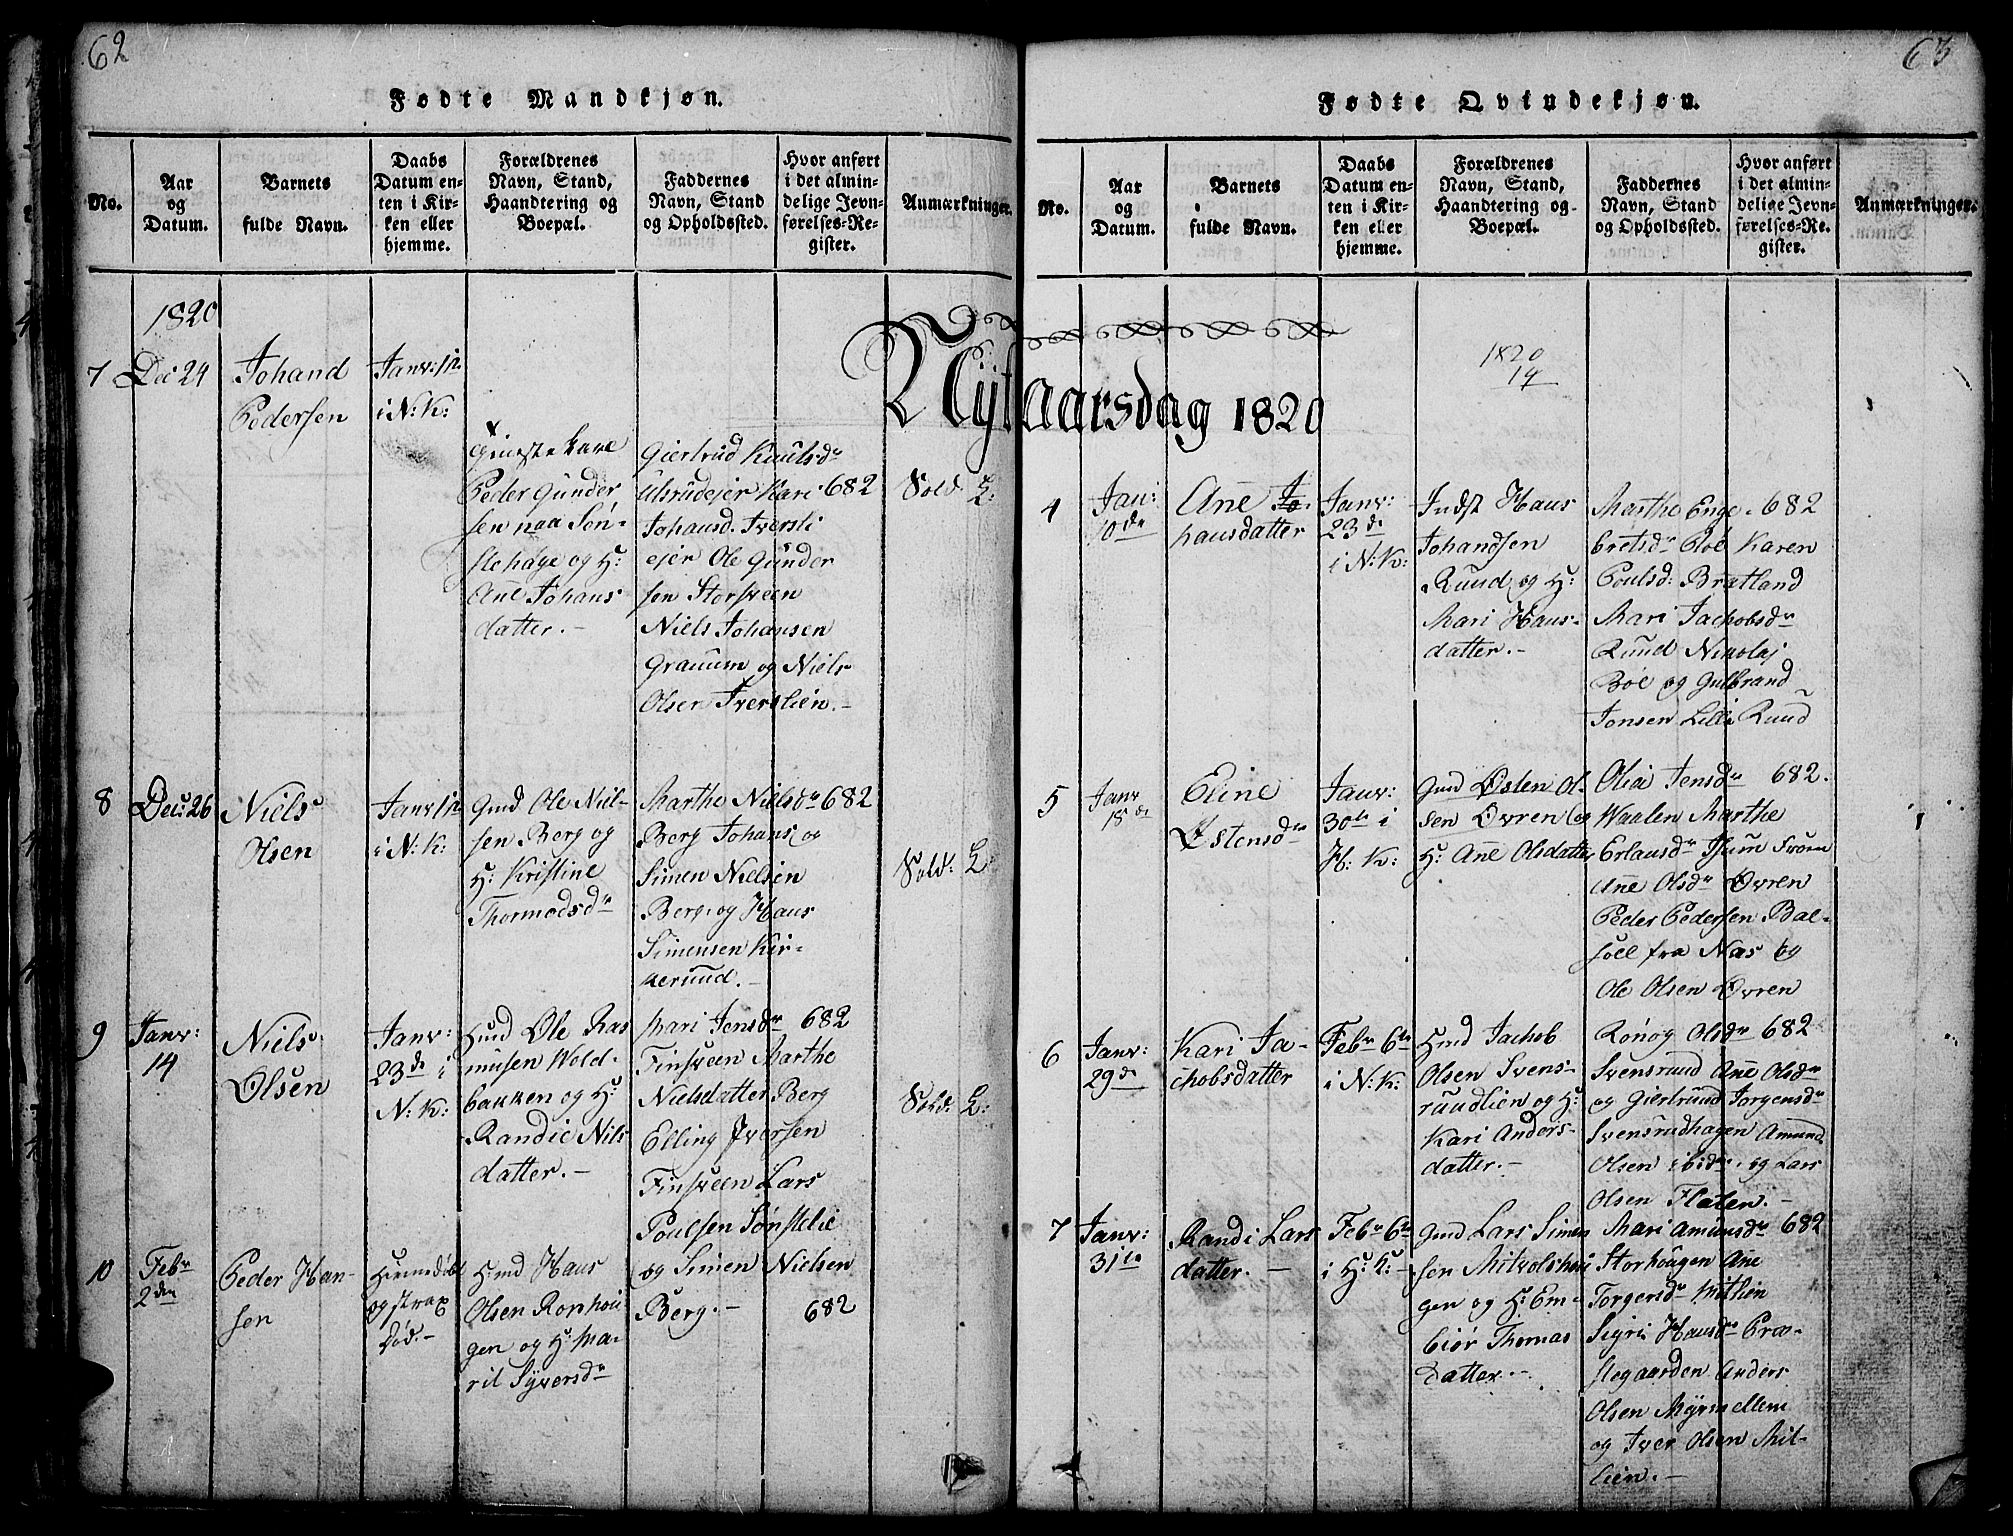 62
Fødte Mandkjøn.
No.
Aar
og
Datum.
Barnets
fulde Navn.
Daabs
Datum en-
ten i Kir-
ken eller
hjemme.
Forældrenes
Navn, Stand,
Haandtering og
Boepæl.
Faddernes
Navn, Stand
og Opholdssted.
Hvor anført
i det almin-
delige Jevn-
førelses-Re-
gister.
Anmærkninger.
1820
Nijtaarsdag 1820
7
Dec 24
Johand
Pedersen
Janv: 1te
i N: K:
Peder Gunder
sen paa Søn-
stehage og H:
Ane Johans
datter.-
Giertrud Knutsdr
Ulsrudejer Kari
Johansd. Iversli
ejer Ole Gunder
sen Storsveen
Niels Johansen
Grauum og Niels
Olsen Iverslien.-
682
Sold: L:
8
Dec: 26
Niels
Olsen
Janv: 1te
i N: K:
Gmd Ole Niel-
sen Berg og
H: Kristine
Thormodsdr
Marthe Nielsdr
Berg Johans og
Simen Nielsen
Berg og Hans
Simensen Kir-
kerund.
682
Sold: L
9
Janv:
14
Niels
Olsen
Janv:
23de i
N: K:
Hmd Ole Ras
musen Wold-
bakken og H:
Randie Nils
datter.-
Mari Jensdr
Finsveen Marthe
Nielsdatter Berg
Elling Iversen
Finsveen Lars
Poulsen Sønstelie
og Simen Nielsen
Berg.-
682
Sold: L:
10
Febr
2den
Peder Han-
sen
Hiemedøbt
og strax
Død.-
Hmd Hans
Olsen Ronhou
gen og H: Ma-
ril Syversdr
682
63
Fødte Qvindekjøn.
No.
Aar
og
Datum.
Barnets
fulde Navn.
Daabs
Datum en-
ten i Kir-
ken eller
hjemme.
Forældrenes
Navn, Stand,
Haandtering og
Boepæl.
Faddernes
Navn, Stand
og Opholdssted.
Hvor anført
i det almin-
delige Jevn-
førelses-Re-
gister.
Anmærkninger.
1820
14
4
Jan:
10de
Ane Jo
hansdatter
Janv:
23de
i N: K:
Indst Hans
Johandsen
Ruud og H:
Mari Hans-
datter.-
Marthe Enge-
bretsdr Böe Karen
Poulsd: Bratland
Mari Jachobsdr
Ruud Nikolaj
Böe og Gulbrand
Jonsen Lilli Ruud
682
5
Janv
18de
Eline
Østensdr
Janv:
30te i
H: K:
Gmd Østen Ol-
sen Øvren og
H: Ane Olsdatter
Olia Jensdr
Waalen Marthe
Erlandsdr
Ane Olsdr Øvren
Peder Pedersen Bal-
foll fra Næs og
Ole Olsen Øvren
682.
6
Janv:
29de
Kari Ja-
chobsdatter
Febr 6te
i N: K:
Hmd Jachob
Olsen Svens-
ruudlien og H:
Kari Anders-
datter.-
Rönog Olsdr
Svensruud Ane Olsdr
og Giertruud Jorgensdr
Svensrudhagen Amund
Olsen ibidm. og Lars
Olsen Flaten.-
682
7
Janv:
31te
Randi Lars
datter.-
Febr 6te
i H: K:-
Gmd Lars Simen
sen Mitvolshou
gen og H: Em-
biør Thomas
Datter.-
Mari Amunsdr
Storhougen Ane
Torgersdr Mitlien
Sigri Hansdr Præ-
stegaarden Anders
Olsen Myrmellem
og Iver Olsen Mit-
lien.-
682